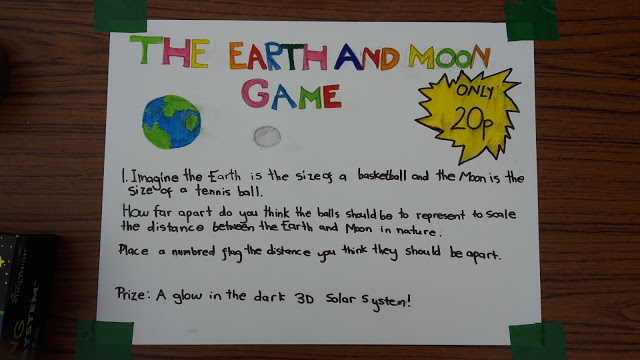 THE EARTH AND MOON
GAME
ONLY
20p
1. Imagine the Earth is the size of a basketball and the Moon is the
size of a tennis ball.
How far apart do you think the balls should be to represent to scale
the distance between the Earth and Moon in nature.
Place a numbred flag the distance you think they should be apart.
Prize: A glow in the dark 3D Solar System!